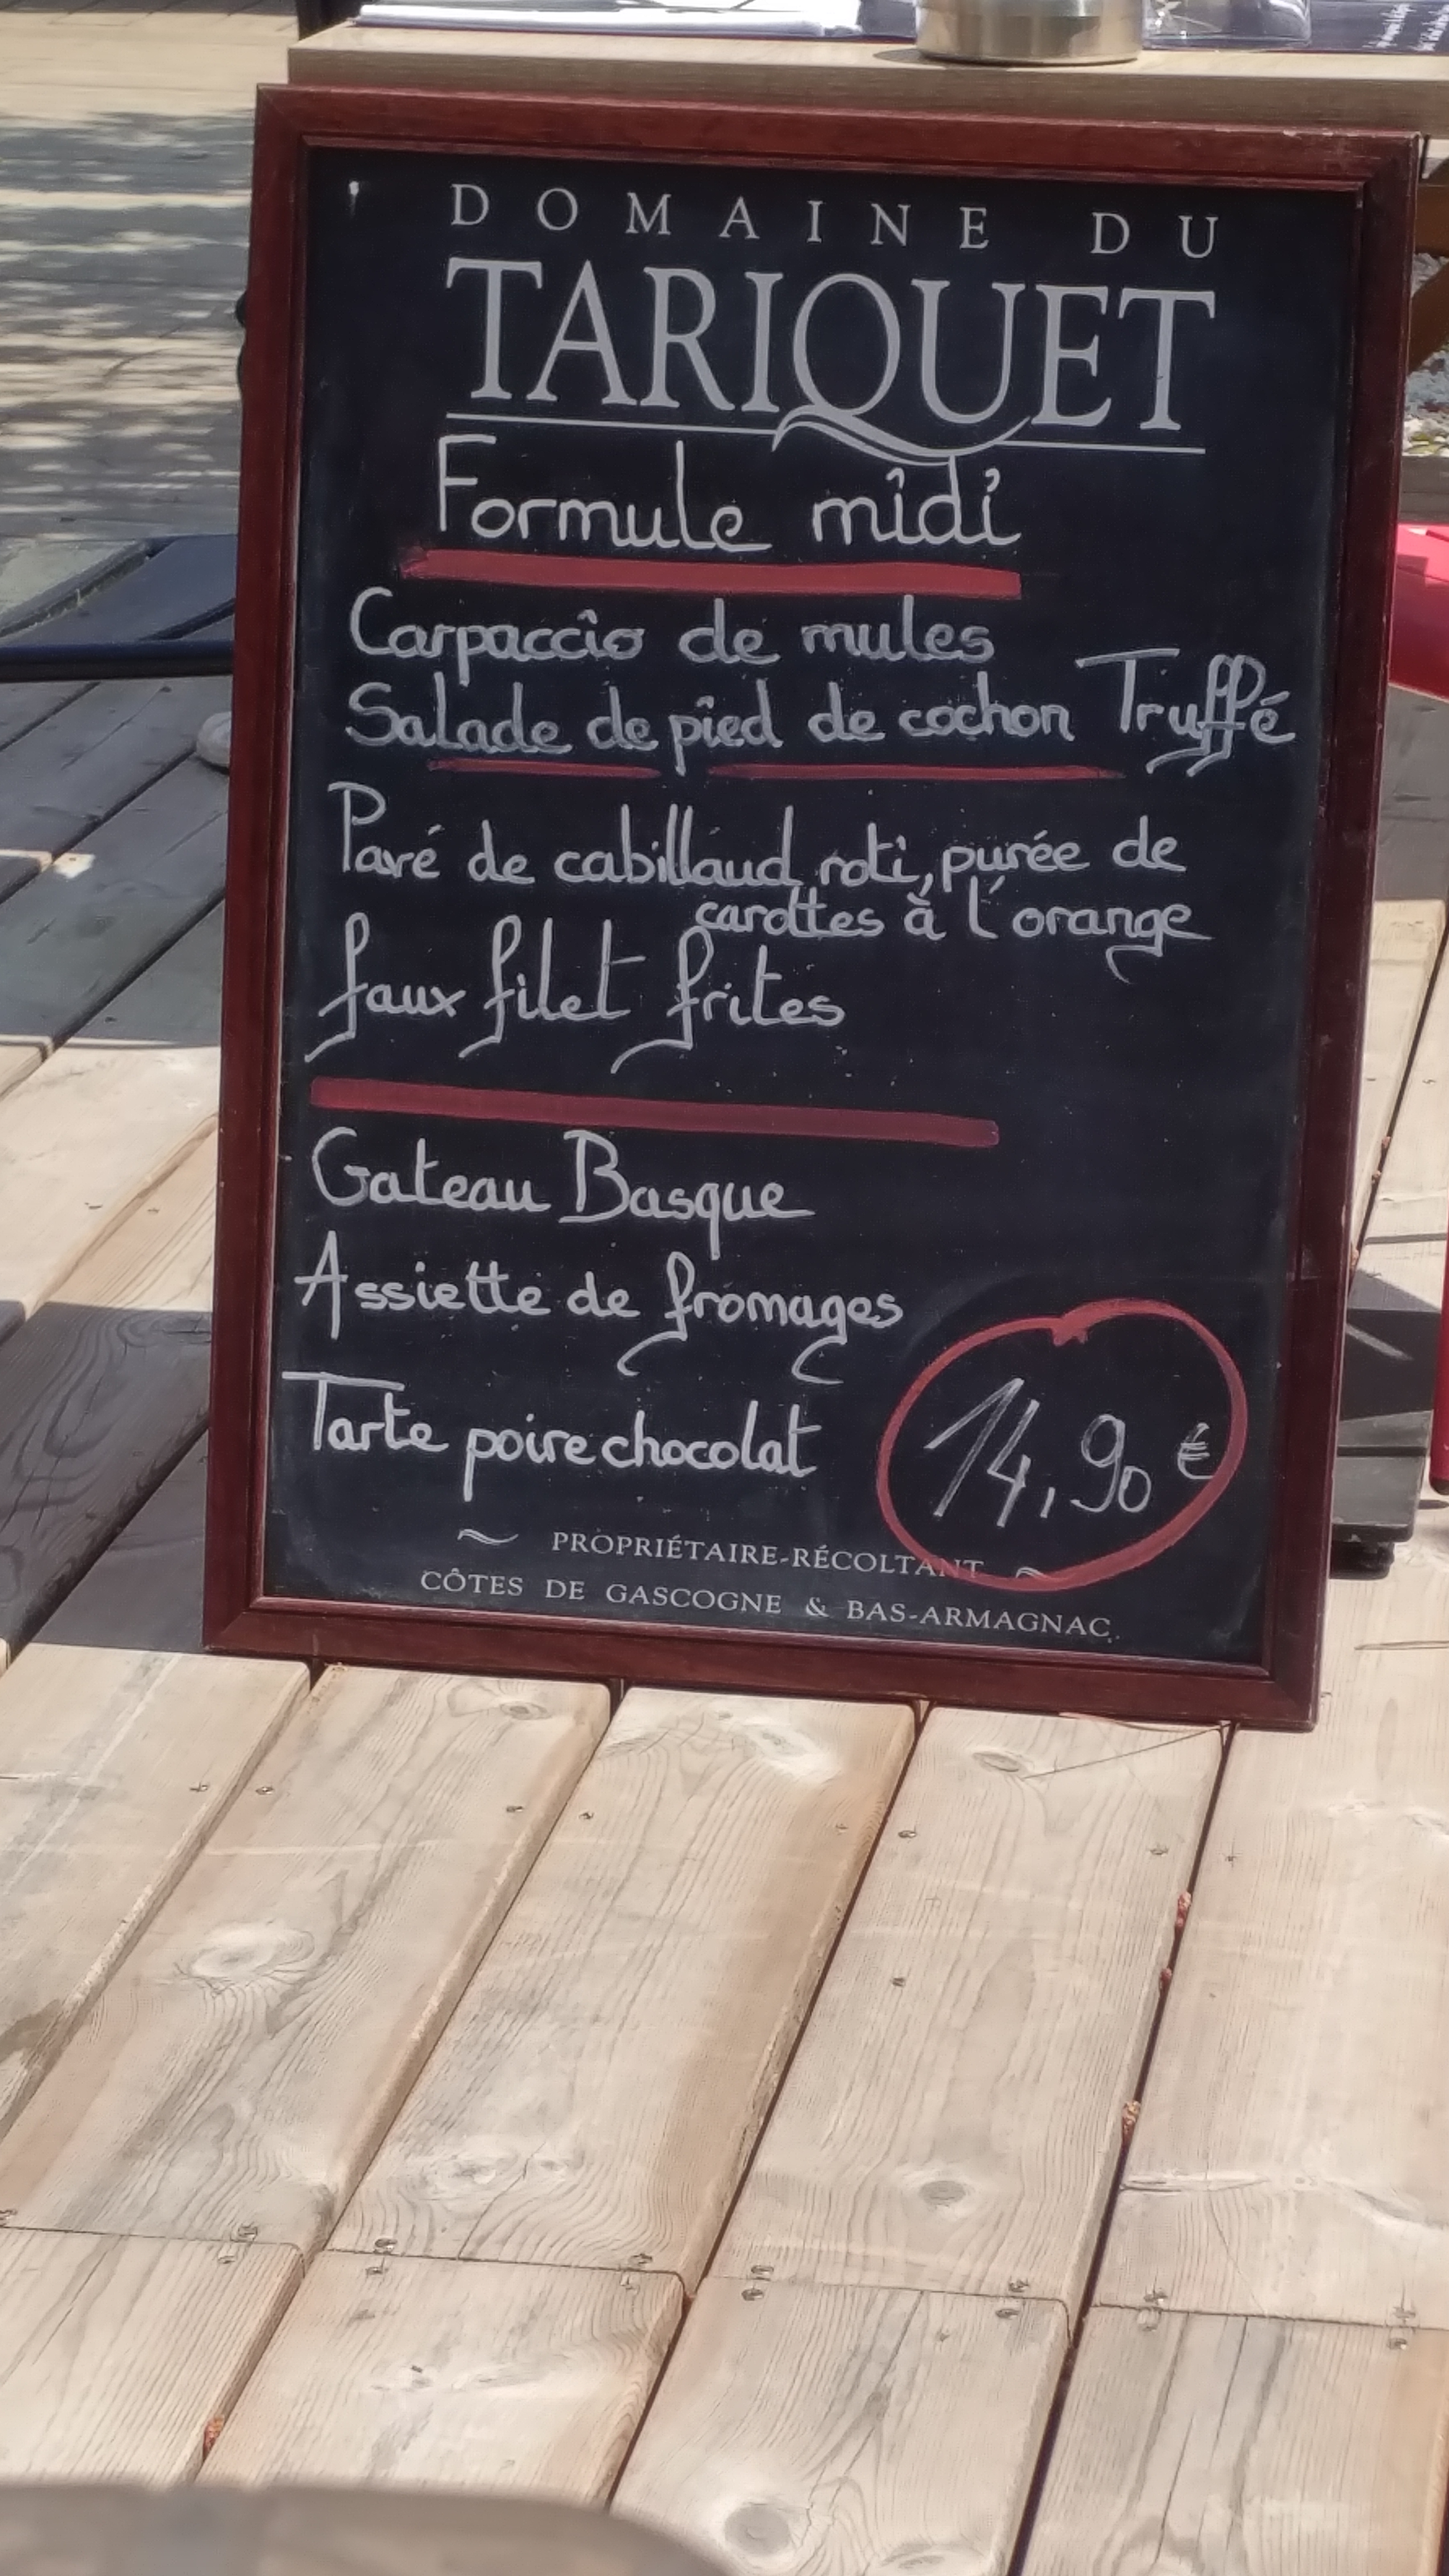 DOMAINE DU
TARIQUET
Formule midi
Carpaccio de mules
Salade de pied de cochon Truffé
Pavé de cabillaud roti, purée de
carottes à l'orange
faux filet frites
Gateau Basque
Assiette de fromages
Tarte poire chocolat
14,90 €
~ PROPRIÉTAIRE-RÉCOLTANT ~
CÔTES DE GASCOGNE & BAS-ARMAGNAC